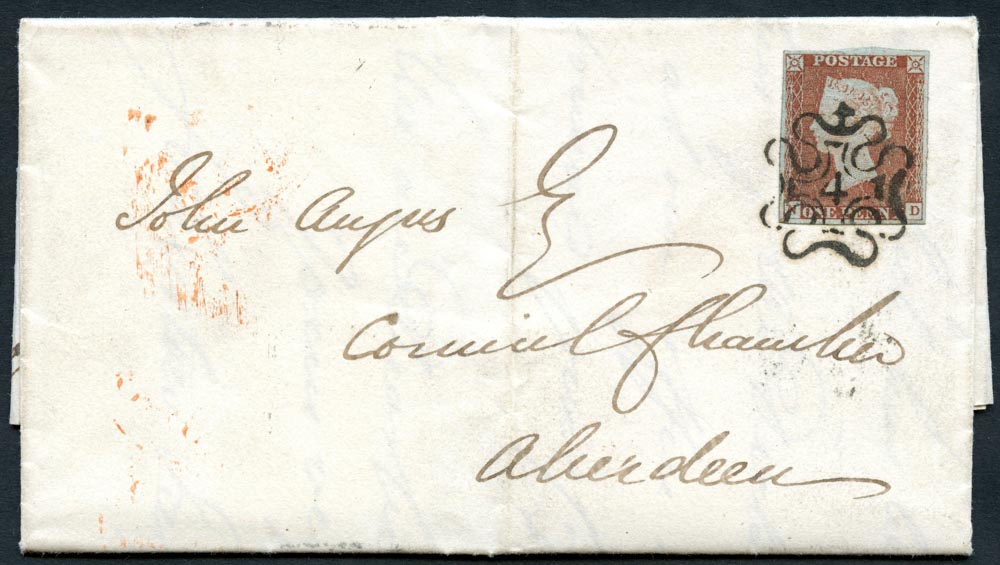 POSTAGE
4
ONE PENNY
N D
John Angus E
Council Chamber
Aberdeen